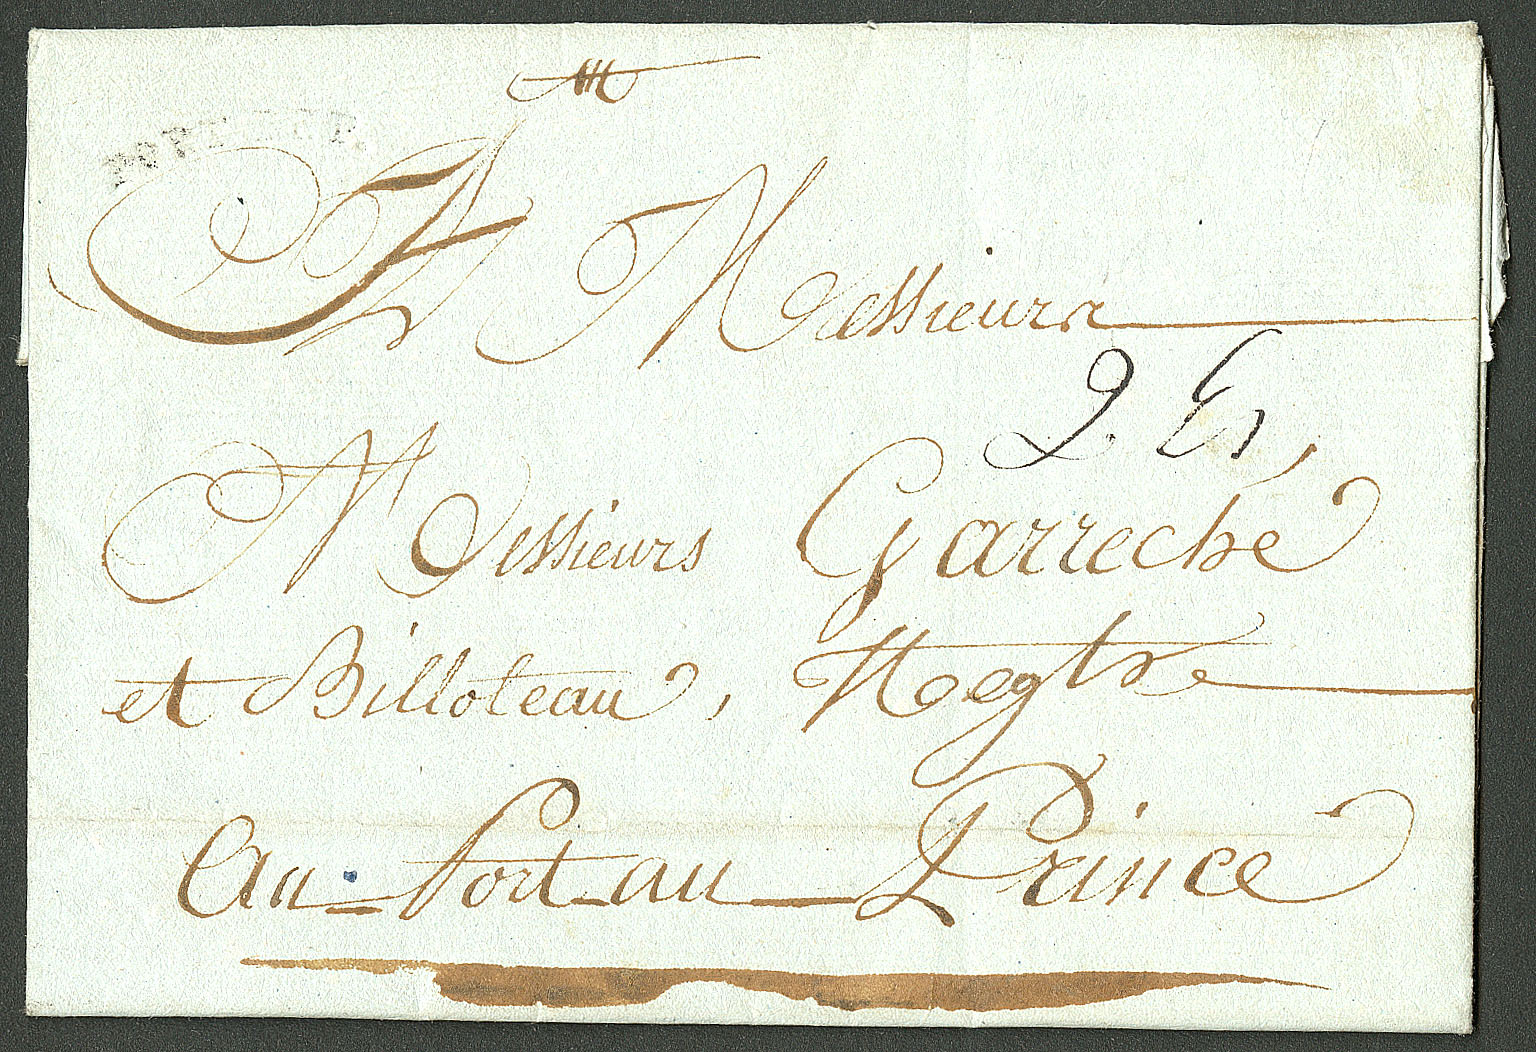 A Messieurs
2 E,
Messieurs Garreche
et Billoteau, Negtre
Au Port au Prince